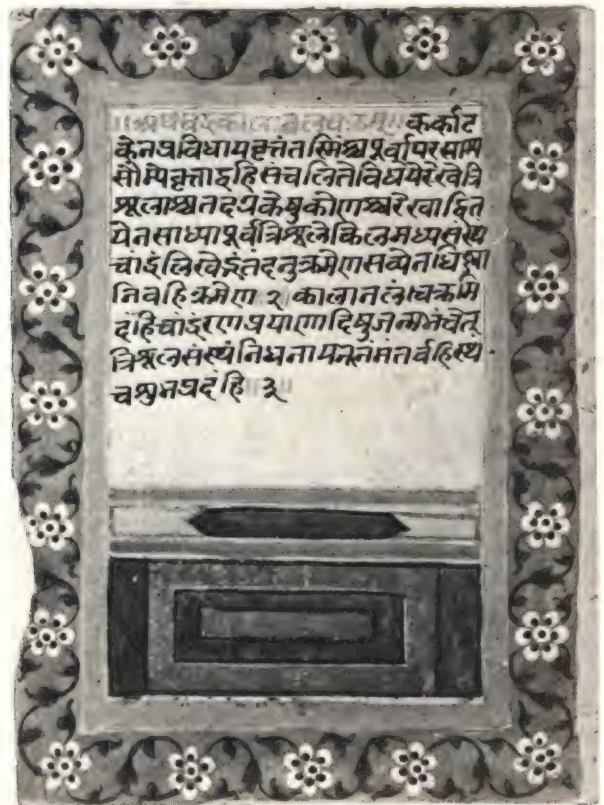 ॥अथचंद्रकालानलचक्रम्॥ कर्काट
केनप्रविधायवृत्तंतस्मिंश्चपूर्वापरयाम्य
सौम्येवृत्ताद्बहिःसंचलितेविधेयेरेखेत्रि
शूलाश्चतदग्रकेषुकोणश्चरेखाद्वित
येनसाध्यापूर्वत्रिशूलेकिलमध्यसंस्थ
चांद्रंलिखेद्भंतदनुक्रमेणसव्येनधिष्ण्या
निबहिःक्रमेण २ कालानलंचक्रमि
दंहिचांद्रंरणप्रयाणादिषुजन्मभंचेत्
त्रिशूलसंस्थंनिधनायनूनमंतर्बहिस्थ
चशुभप्रदंहि ॥३॥